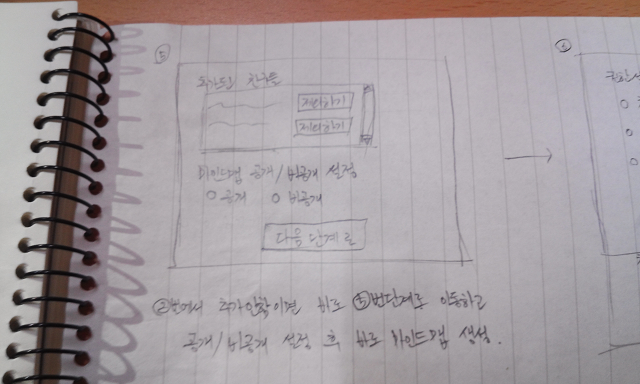 ⑤
추가된 친구들
제외하기
제외하기
마인드맵 공개/비공개 설정
공개 비공개
다음 단계로
②번에서 추가안함이면 바로 ⑤번단계로 이동하고
공개/비공개 설정 후 바로 마인드맵 생성.